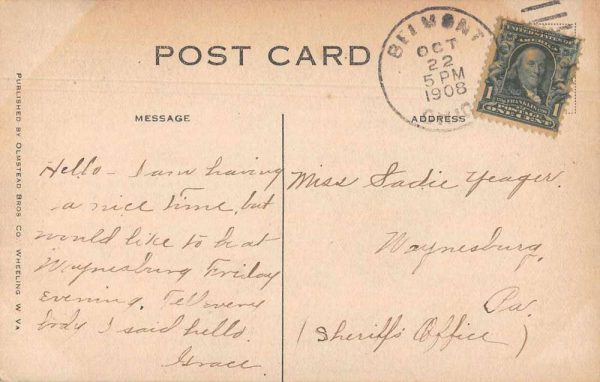 POST CARD
BELMONT
OCT
22
5 PM
1908
OHIO
UNITED STATES OF AMERICA
1 FRANKLIN 1
POSTAGE
ONE CENT
PUBLISHED BY OLMSTEAD BROS CO. WHEELING W. VA
MESSAGE
Hello - I am having
a nice time, but
would like to be at
Waynesburg Friday
evening. Tell every
body I said hello.
Grace
ADDRESS
Miss Sadie Yeager.
Waynesburg,
Pa.
(Sheriff's Office)